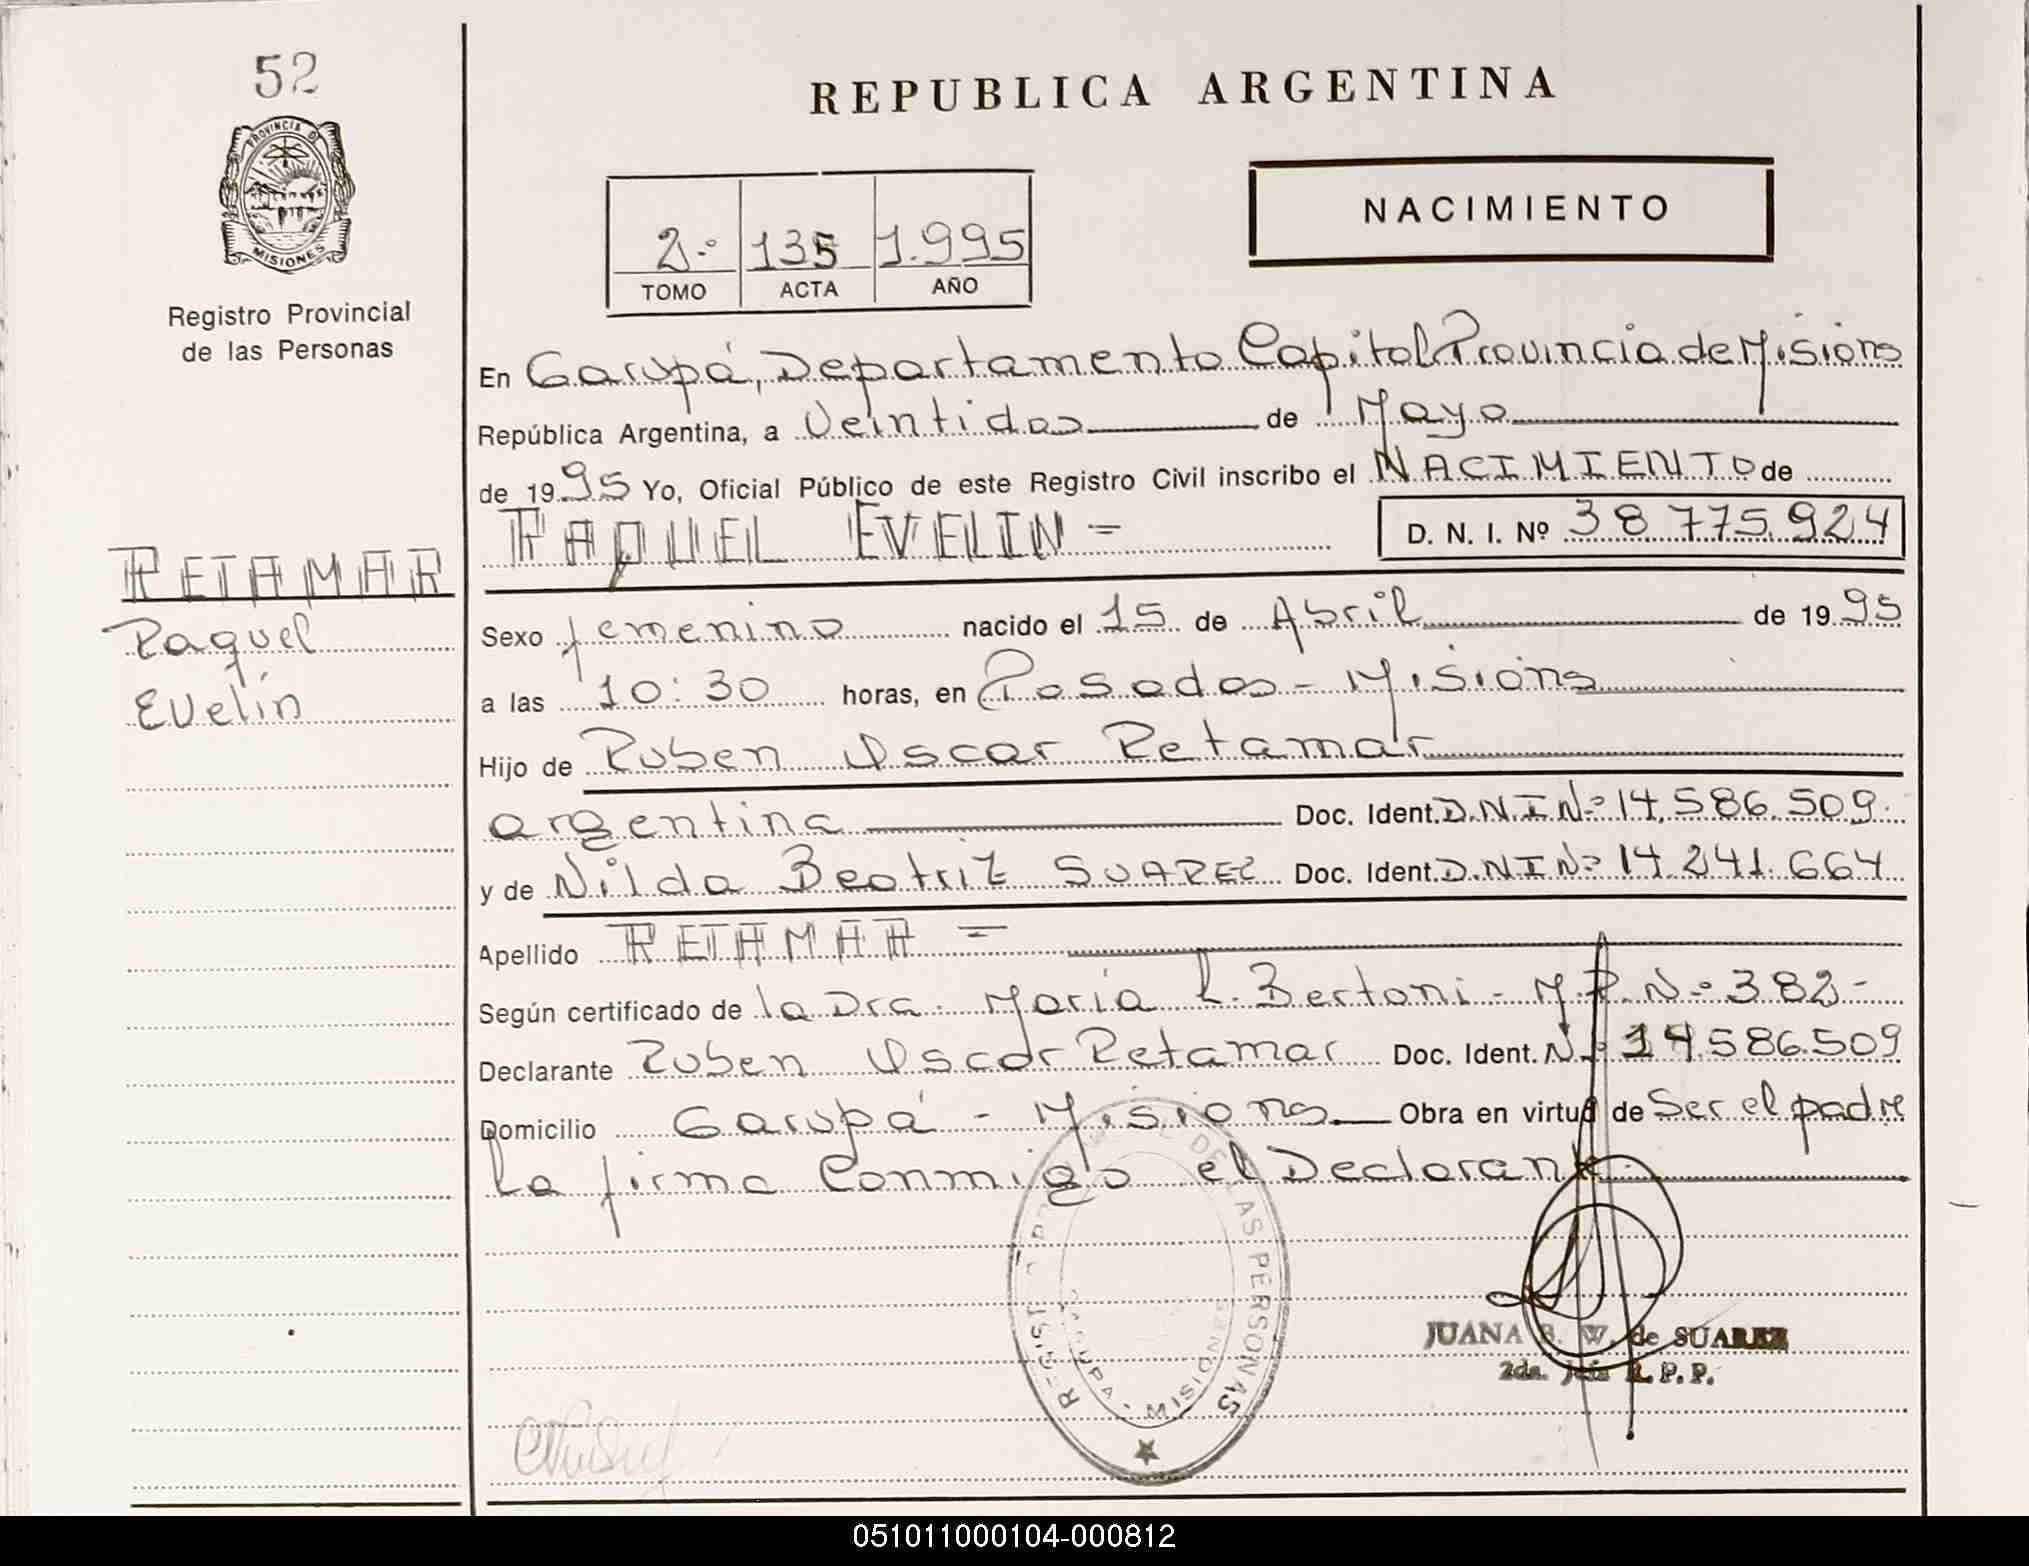 52
PROVINCIA D
MISIONES
Registro Provincial
de las Personas
RETAMAR
Raquel
Evelín
REPUBLICA ARGENTINA
2.º 135 1.995
TOMO ACTA AÑO
NACIMIENTO
En Garupá, Departamento Capital Provincia de Misiones
República Argentina, a Veintidos de Mayo
de 1995 Yo, Oficial Público de este Registro Civil inscribo el NACIMIENTO de
RAQUEL EVELIN = D. N. I. Nº 38.775.924
Sexo femenino nacido el 15 de Abril de 1995
a las 10:30 horas, en Posadas - Misiones
Hijo de Ruben Oscar Retamar
argentina Doc. Ident. D.N.I Nº 14.586.509
y de Nilda Beatriz SUAREZ Doc. Ident. D.N.I Nº 14.241.664
Apellido RETAMAR =
Según certificado de la Dra. María L. Bertoni - M.P. Nº 382 -
Declarante Ruben Oscar Retamar Doc. Ident. Nº 14.586.509
Domicilio Garupá - Misiones Obra en virtud de Ser el padre
La firma Conmigo el Declarante
DE LAS PERSONAS
GARUPA - MISIONES
JUANA B. W. de SUAREZ
2da. Jefa R. P. P.
051011000104-000812